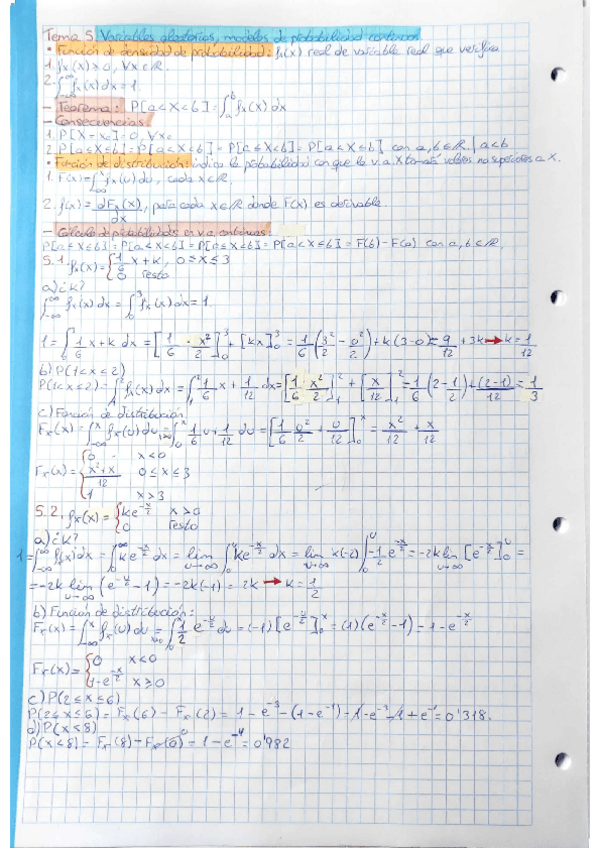 Tema 5. Variables aleatorias, modelos de probabilidad continuos
• Función de densidad de probabilidad: fx(x) real de variable real que verifica
1. fx(x) ≥ 0, ∀x∈ℝ.
2. ∫_{-∞}^{∞} fx(x) dx = 1.
- Teorema: P[a<X<b] = ∫_a^b fx(x) dx
- Consecuencias:
1. P[X=x₀]=0, ∀x₀
2. P[a≤X≤b] = P[a<X<b] = P[a≤X<b] = P[a<X≤b] con a,b∈ℝ | a<b
• Función de distribución: indica la probabilidad con que la v.a. X tomará valores no superiores a x.
1. F(x) = ∫_{-∞}^x fx(u) du, cada x∈ℝ.
2. f(x) = dFx(x)/dx, para cada x∈ℝ donde F(x) es derivable
- Cálculo de probabilidades en v.a. continuas:
P[a≤X≤b] = P[a<X<b] = P[a≤X<b] = P[a<X≤b] = F(b) - F(a) con a,b∈ℝ.
5.1. fx(x) = { 1/6 x + k, 0≤x≤3
0 resto
a) ¿k?
∫_{-∞}^{∞} fx(x) dx = ∫_0^3 fx(x) dx = 1.
1 = ∫_0^3 1/6 x + k dx = [1/6 · x²/2]_0^3 + [kx]_0^3 = 1/6 (3²/2 - 0²/2) + k(3-0) = 9/12 + 3k → k = 1/12
b) P(1≤x≤2)
P(1≤x≤2) = ∫_1^2 fx(x) dx = ∫_1^2 1/6 x + 1/12 dx = [1/6 · x²/2]_1^2 + [x/12]_1^2 = 1/6 (2 - 1/2) + (2-1)/12 = 1/3
c) Función de distribución
Fx(x) = ∫_{-∞}^x fx(u) du = ∫_0^x 1/6 u + 1/12 du = [1/6 u²/2 + u/12]_0^x = x²/12 + x/12
Fx(x) = { 0 x<0
x²+x/12 0≤x≤3
1 x>3
5.2. fx(x) = { ke^{-x/2} x>0
0 resto
a) ¿k?
1 = ∫_{-∞}^{∞} fx(x) dx = ∫_0^∞ ke^{-x/2} dx = lim_{u→∞} ∫_0^u ke^{-x/2} dx = lim_{u→∞} k(-2) ∫_0^u -1/2 e^{-x/2} = -2k lim_{u→∞} [e^{-x/2}]_0^u =
= -2k lim_{u→∞} (e^{-u/2} - 1) = -2k(-1) = 2k → k = 1/2
b) Función de distribución:
Fx(x) = ∫_{-∞}^x fx(u) du = ∫_0^x 1/2 e^{-u/2} du = (-1) [e^{-u/2}]_0^x = (-1)(e^{-x/2} - 1) = 1 - e^{-x/2}
Fx(x) = { 0 x<0
1-e^{-x/2} x≥0
c) P(2≤x≤6)
P(2≤x≤6) = Fx(6) - Fx(2) = 1 - e^{-3} - (1 - e^{-1}) = 1 - e^{-3} - 1 + e^{-1} = 0'318.
d) P(x≤8)
P(x≤8) = Fx(8) - Fx(0) = 1 - e^{-4} = 0'982